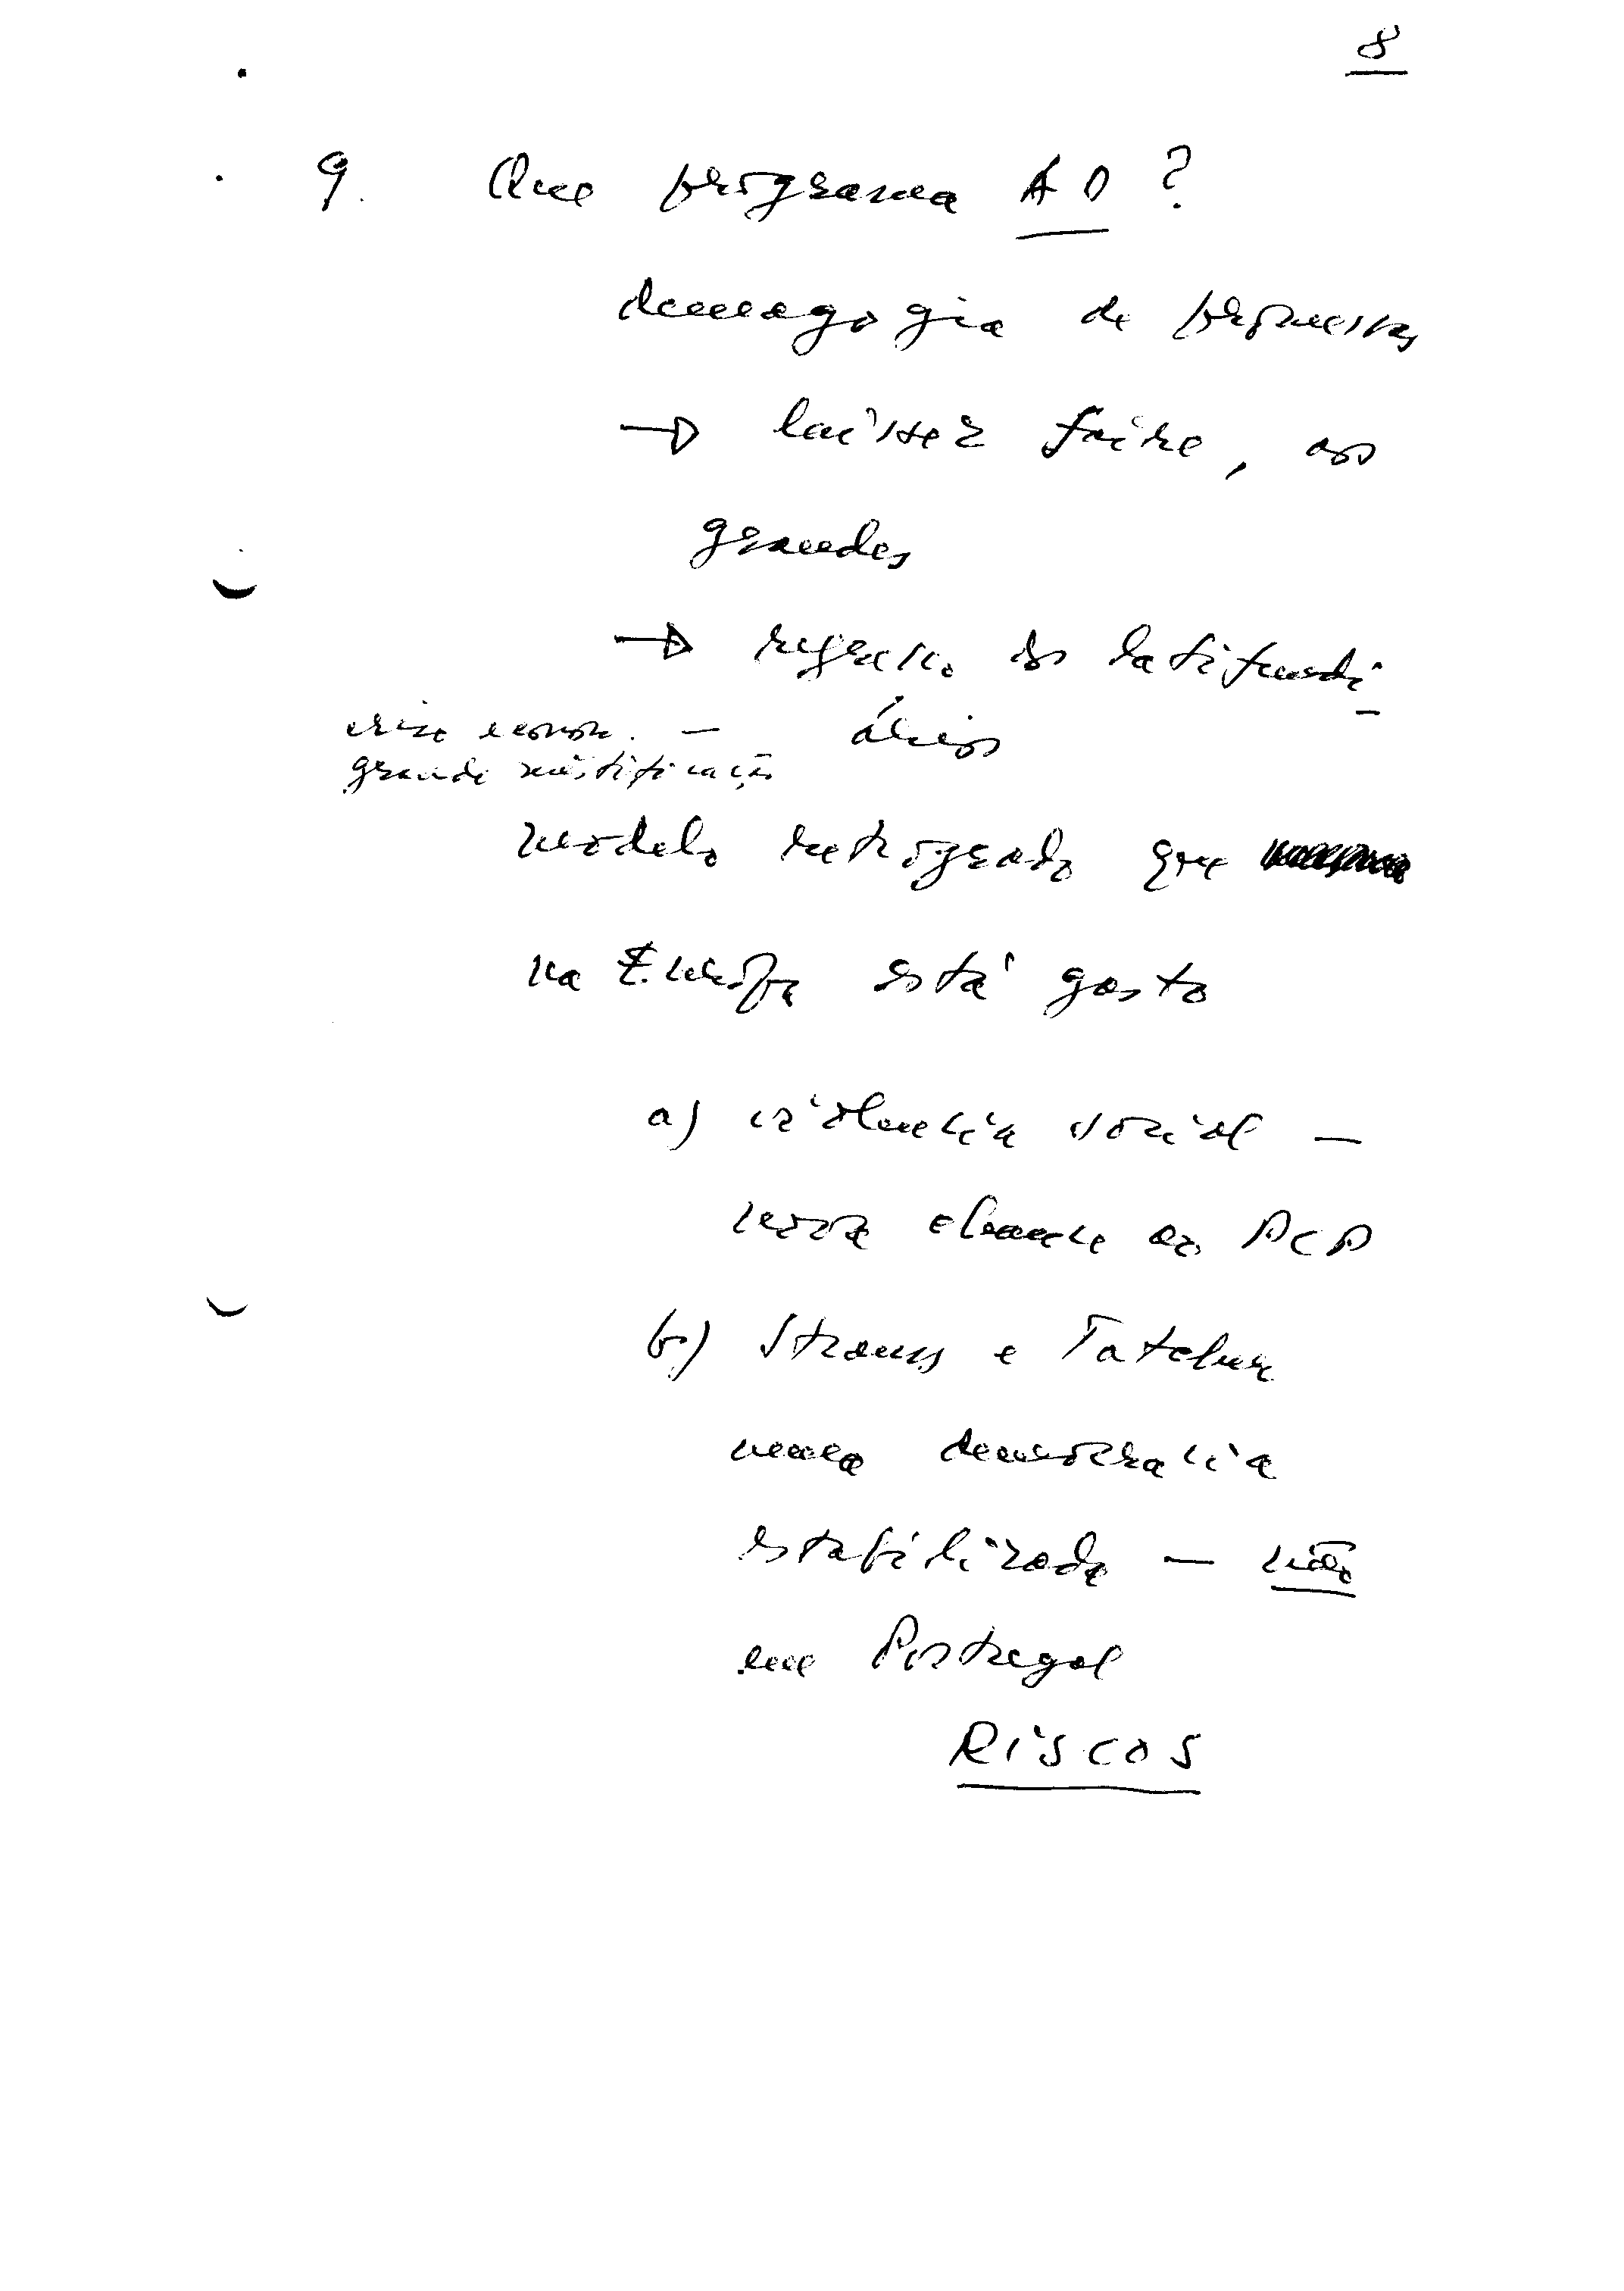 8
9. Que programa AD?
demagogia de promessas
→ laissez faire, aos
grandes
→ regresso dos latifundi-
ários
crise econom. —
grande mistificação
modelo retrógrado que
na Europa está gasto
a) violência social —
nova chance ao PCP
b) Strauss e Tatcher
numa democracia
estabilizada — não
em Portugal
RISCOS